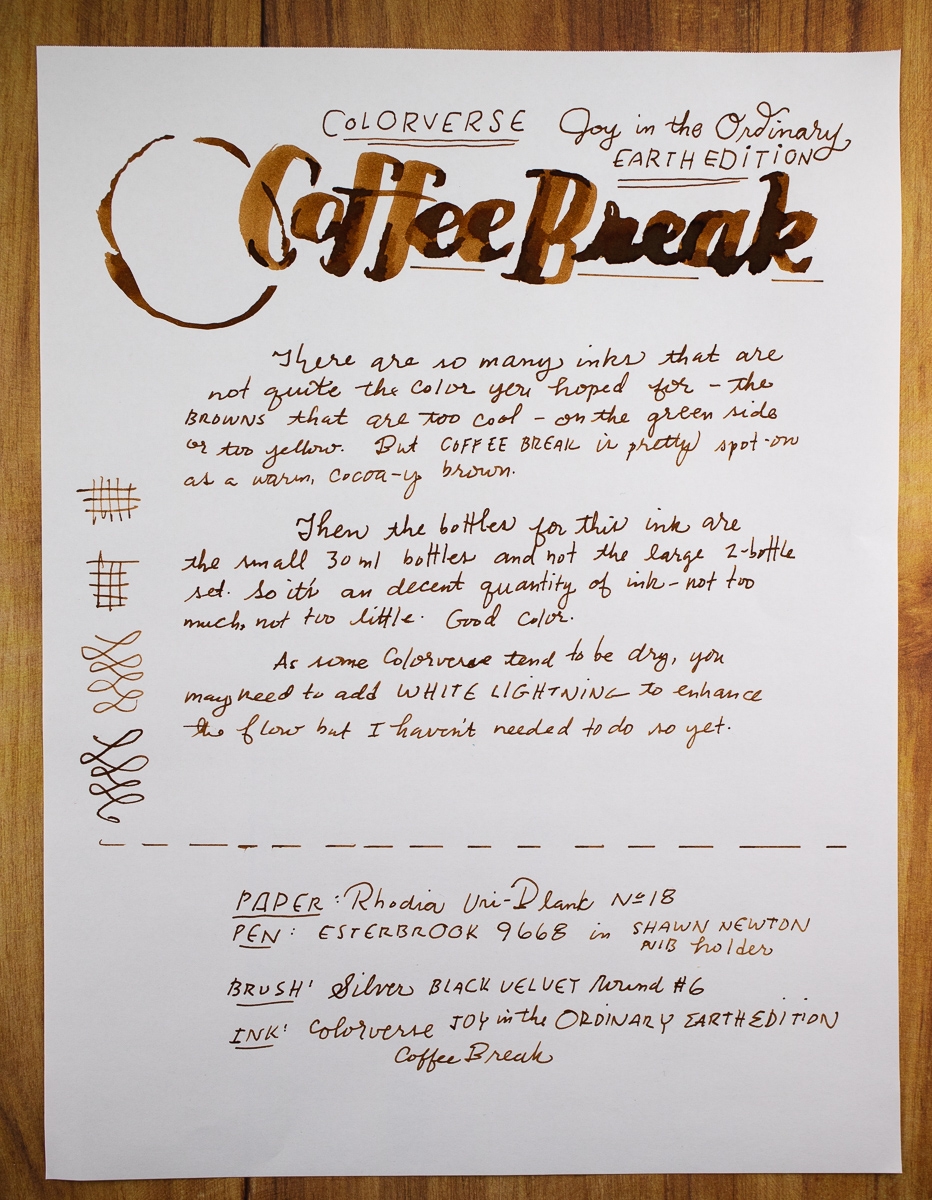 COLORVERSE Joy in the Ordinary
EARTH EDITION
Coffee Break
There are so many inks that are
not quite the color you hoped for - the
BROWNS that are too cool - on the green side
or too yellow. But COFFEE BREAK is pretty spot-on
as a warm, cocoa-y brown.
Then the bottles for this ink are
the small 30ml bottles and not the large 2-bottle
set. So it's an decent quantity of ink - not too
much, not too little. Good color.
As some Colorverse tend to be dry, you
may need to add WHITE LIGHTNING to enhance
the flow but I haven't needed to do so yet.
PAPER: Rhodia Uni-Blank Nº18
PEN: ESTERBROOK 9668 in SHAWN NEWTON
NIB holder
BRUSH: Silver BLACK VELVET Round #6
INK: Colorverse JOY in the ORDINARY EARTH EDITION
Coffee Break